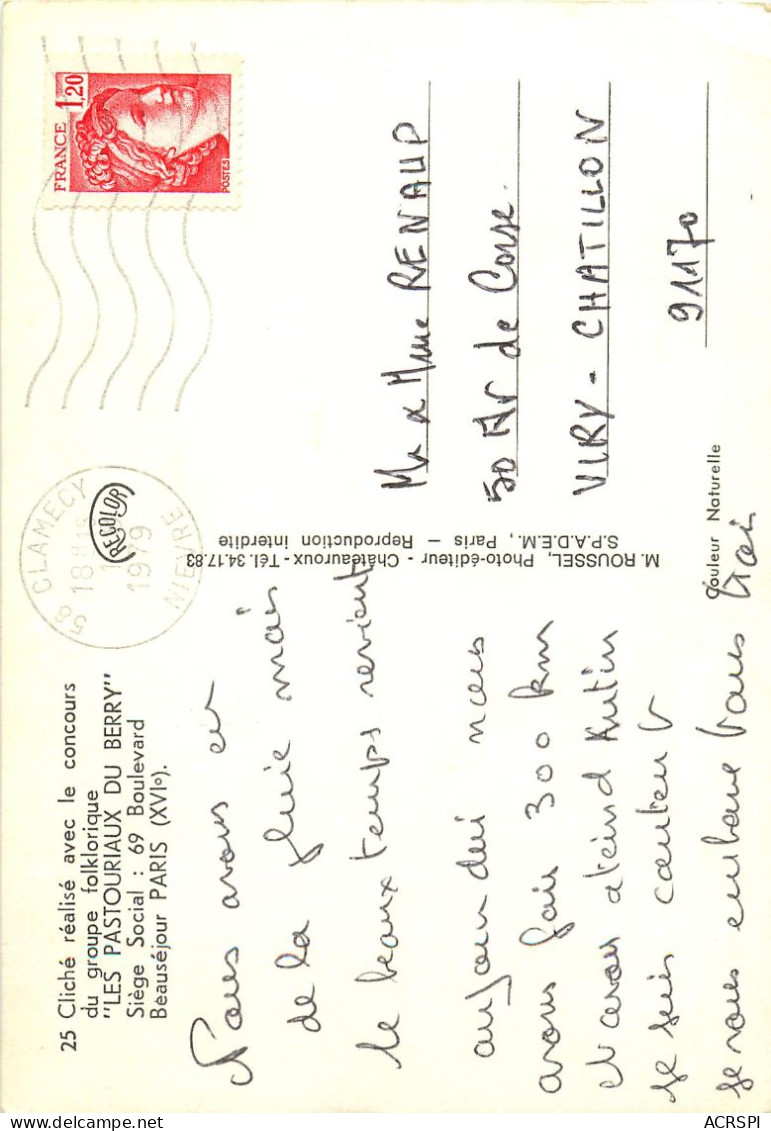 25 Cliché réalisé avec le concours
du groupe folklorique
"LES PASTOURIAUX DU BERRY"
Siège Social : 69 Boulevard
Beauséjour PARIS (XVIe).
Nous avons eu
de la pluie mais
le beaux temps revient
aujourdui nous
avons fais 300 km
avons ateind
je suis content
je vous embrasse tous trois
58 CLAMECY
18H15
1979
NIEVRE
RECOLOR
M. ROUSSEL, Photo-éditeur - Châteauroux - Tél. 34.17.83
S.P.A.D.E.M., Paris — Reproduction interdite
FRANCE
1,20
POSTES
Mr & Mme RENAUP
50 Av de Corse.
VIRY - CHATILLON
91170
Couleur Naturelle
ACRSPI